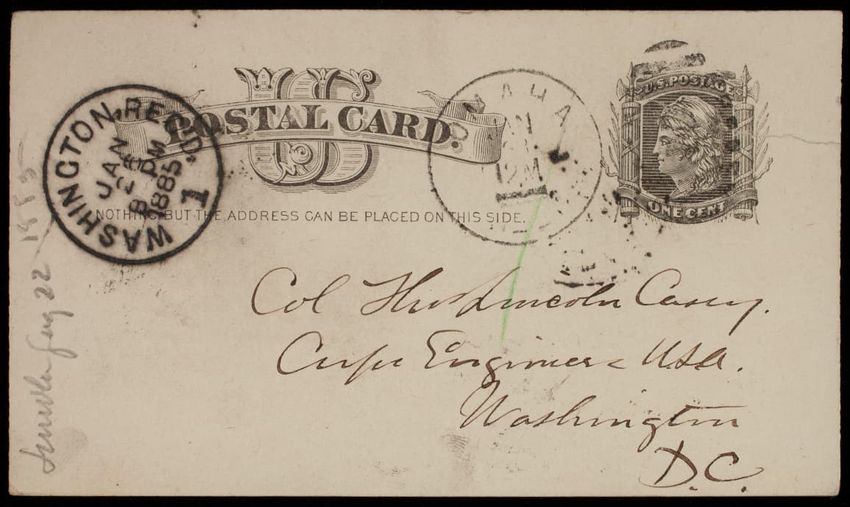 U.S. POSTAGE
ONE CENT
US
POSTAL CARD.
WASHINGTON, REC'D.
JAN
8 PM
1885
1
OMAHA
12M
NOTHING BUT THE ADDRESS CAN BE PLACED ON THIS SIDE.
Col Thos Lincoln Casey.
Corps Engineers USA.
Washington
D.C.
22 1885